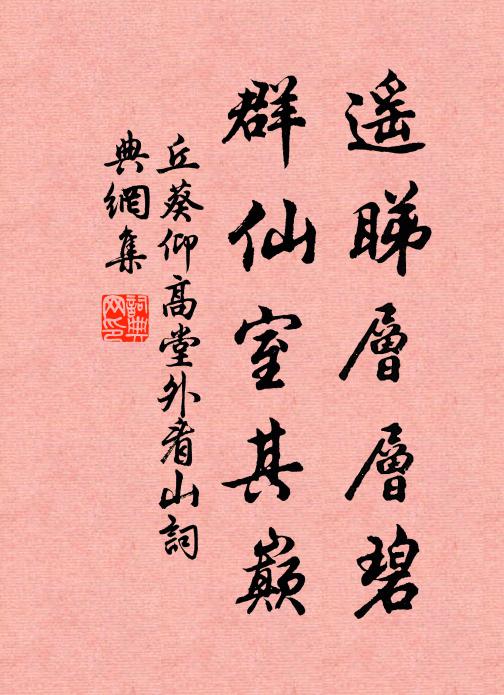 遥睇層層碧
群仙室其巔
丘葵仰高堂外看山詞
典網集
詞典網印